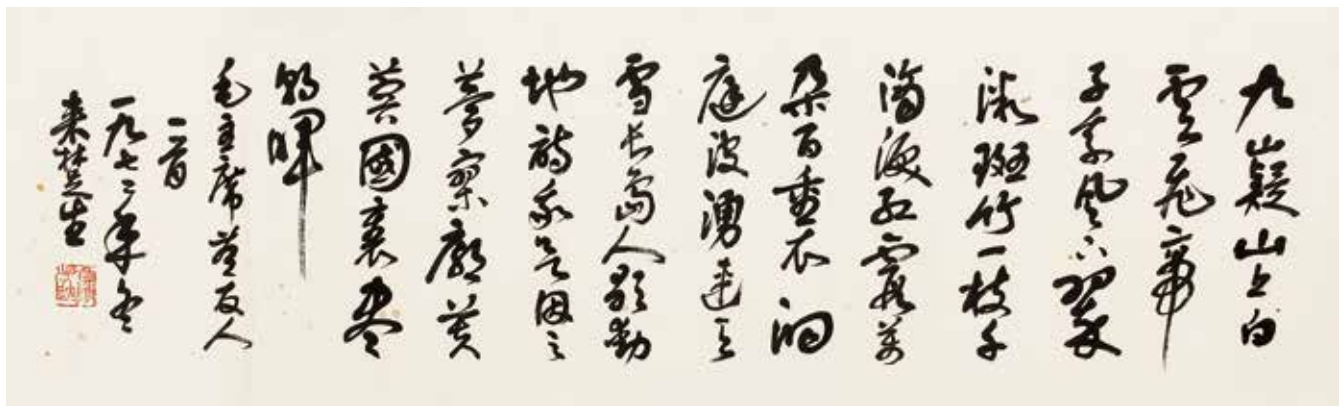 九嶷山上白
雲飛帝
子乘風下翠
微斑竹一枝千
滴淚紅霞萬
朵百重衣洞
庭波湧連天
雪長島人歌動
地詩我欲因之
夢寥廓芙
蓉國裏盡
朝暉
毛主席答友人
一首
一九七二年冬
来楚生